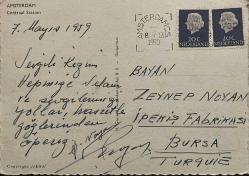 AMSTERDAM
Centraal Station
7. Mayıs 1959
Sevgili Kızım
Hepinize selam
ve sevgilerimizi
yollar, hasretle
gözlerinden
öperiz
AMSTERDAM
1959
10c
NEDERLAND
10c
NEDERLAND
BAYAN
ZEYNEP NOYAN
İPEKİŞ FABRİKASI
BURSA
TURQUIE
Copyright